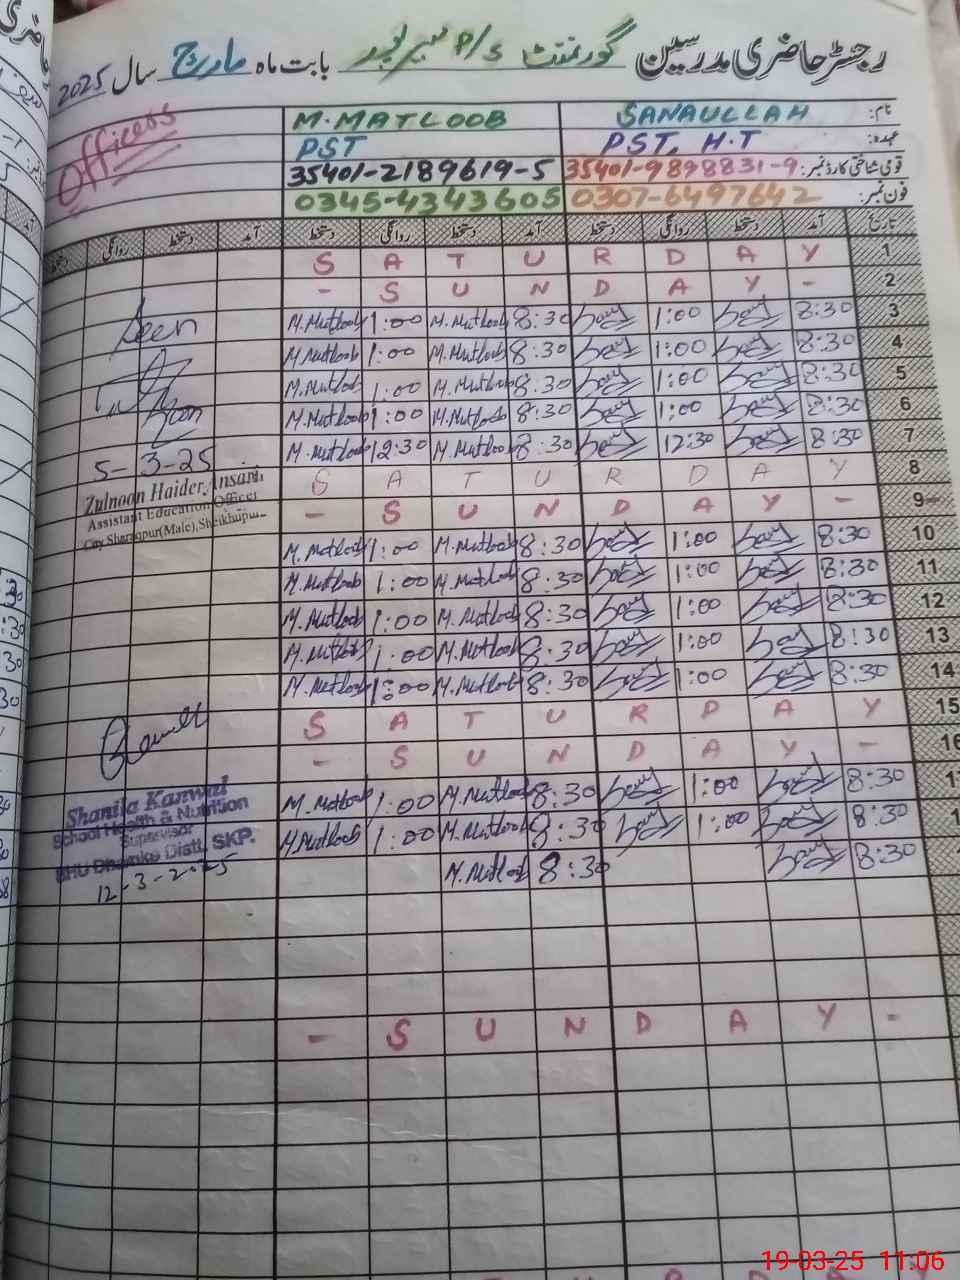 رجسٹر حاضری مدرسین گورنمنٹ P/S بابت ماہ مارچ سال 2025
Officers
نام: SANAULLAH M.MATLOOB
عہدہ: PST, H.T PST
قومی شناختی کارڈ نمبر: 35401-9898831-9 35401-2189619-5
فون نمبر: 0307-6497642 0345-4343605
تاریخ آمد دستخط روانگی دستخط آمد دستخط روانگی دستخط آمد دستخط روانگی دستخط
S A T U R D A Y 1
- S U N D A Y - 2
M.Matloob 1:00 M.Matloob 8:30 1:00 8:30 3
M.Matloob 1:00 M.Matloob 8:30 1:00 8:30 4
M.Matloob 1:00 M.Matloob 8:30 1:00 8:30 5
M.Matloob 1:00 M.Matloob 8:30 1:00 8:30 6
M.Matloob 12:30 M.Matloob 8:30 12:30 8:30 7
S A T U R D A Y 8
- S U N D A Y - 9
M.Matloob 1:00 M.Matloob 8:30 1:00 8:30 10
M.Matloob 1:00 M.Matloob 8:30 1:00 8:30 11
M.Matloob 1:00 M.Matloob 8:30 1:00 8:30 12
M.Matloob 1:00 M.Matloob 8:30 1:00 8:30 13
M.Matloob 1:00 M.Matloob 8:30 1:00 8:30 14
S A T U R D A Y 15
- S U N D A Y - 16
M.Matloob 1:00 M.Matloob 8:30 1:00 8:30
M.Matloob 1:00 M.Matloob 8:30 1:00 8:30
M.Matloob 8:30 8:30
- S U N D A Y -
Seen
5-3-25
Zulnoon Haider Ansari
Assistant Education Officer
City Sharaqpur(Male), Sheikhupura
Shanila Kanwal
School Health & Nutrition
Supervisor
BHU Dhamke Distt. SKP.
12-3-2025
19-03-25 11:06